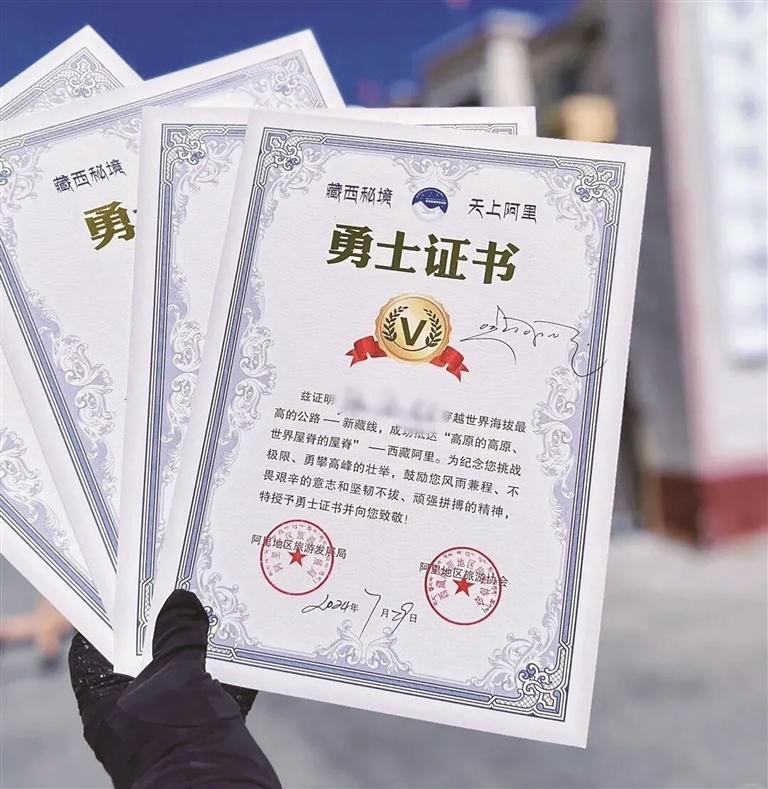 藏西秘境
勇
藏西秘境 天上阿里
勇士证书
V
兹证明 穿越世界海拔最
高的公路——新藏线，成功抵达“高原的高原、
世界屋脊的屋脊”——西藏阿里。为纪念您挑战
极限、勇攀高峰的壮举，鼓励您风雨兼程、不
畏艰辛的意志和坚韧不拔、顽强拼搏的精神，
特授予勇士证书并向您致敬！
阿里地区旅游发展局 阿里地区旅游协会
2024年7月29日